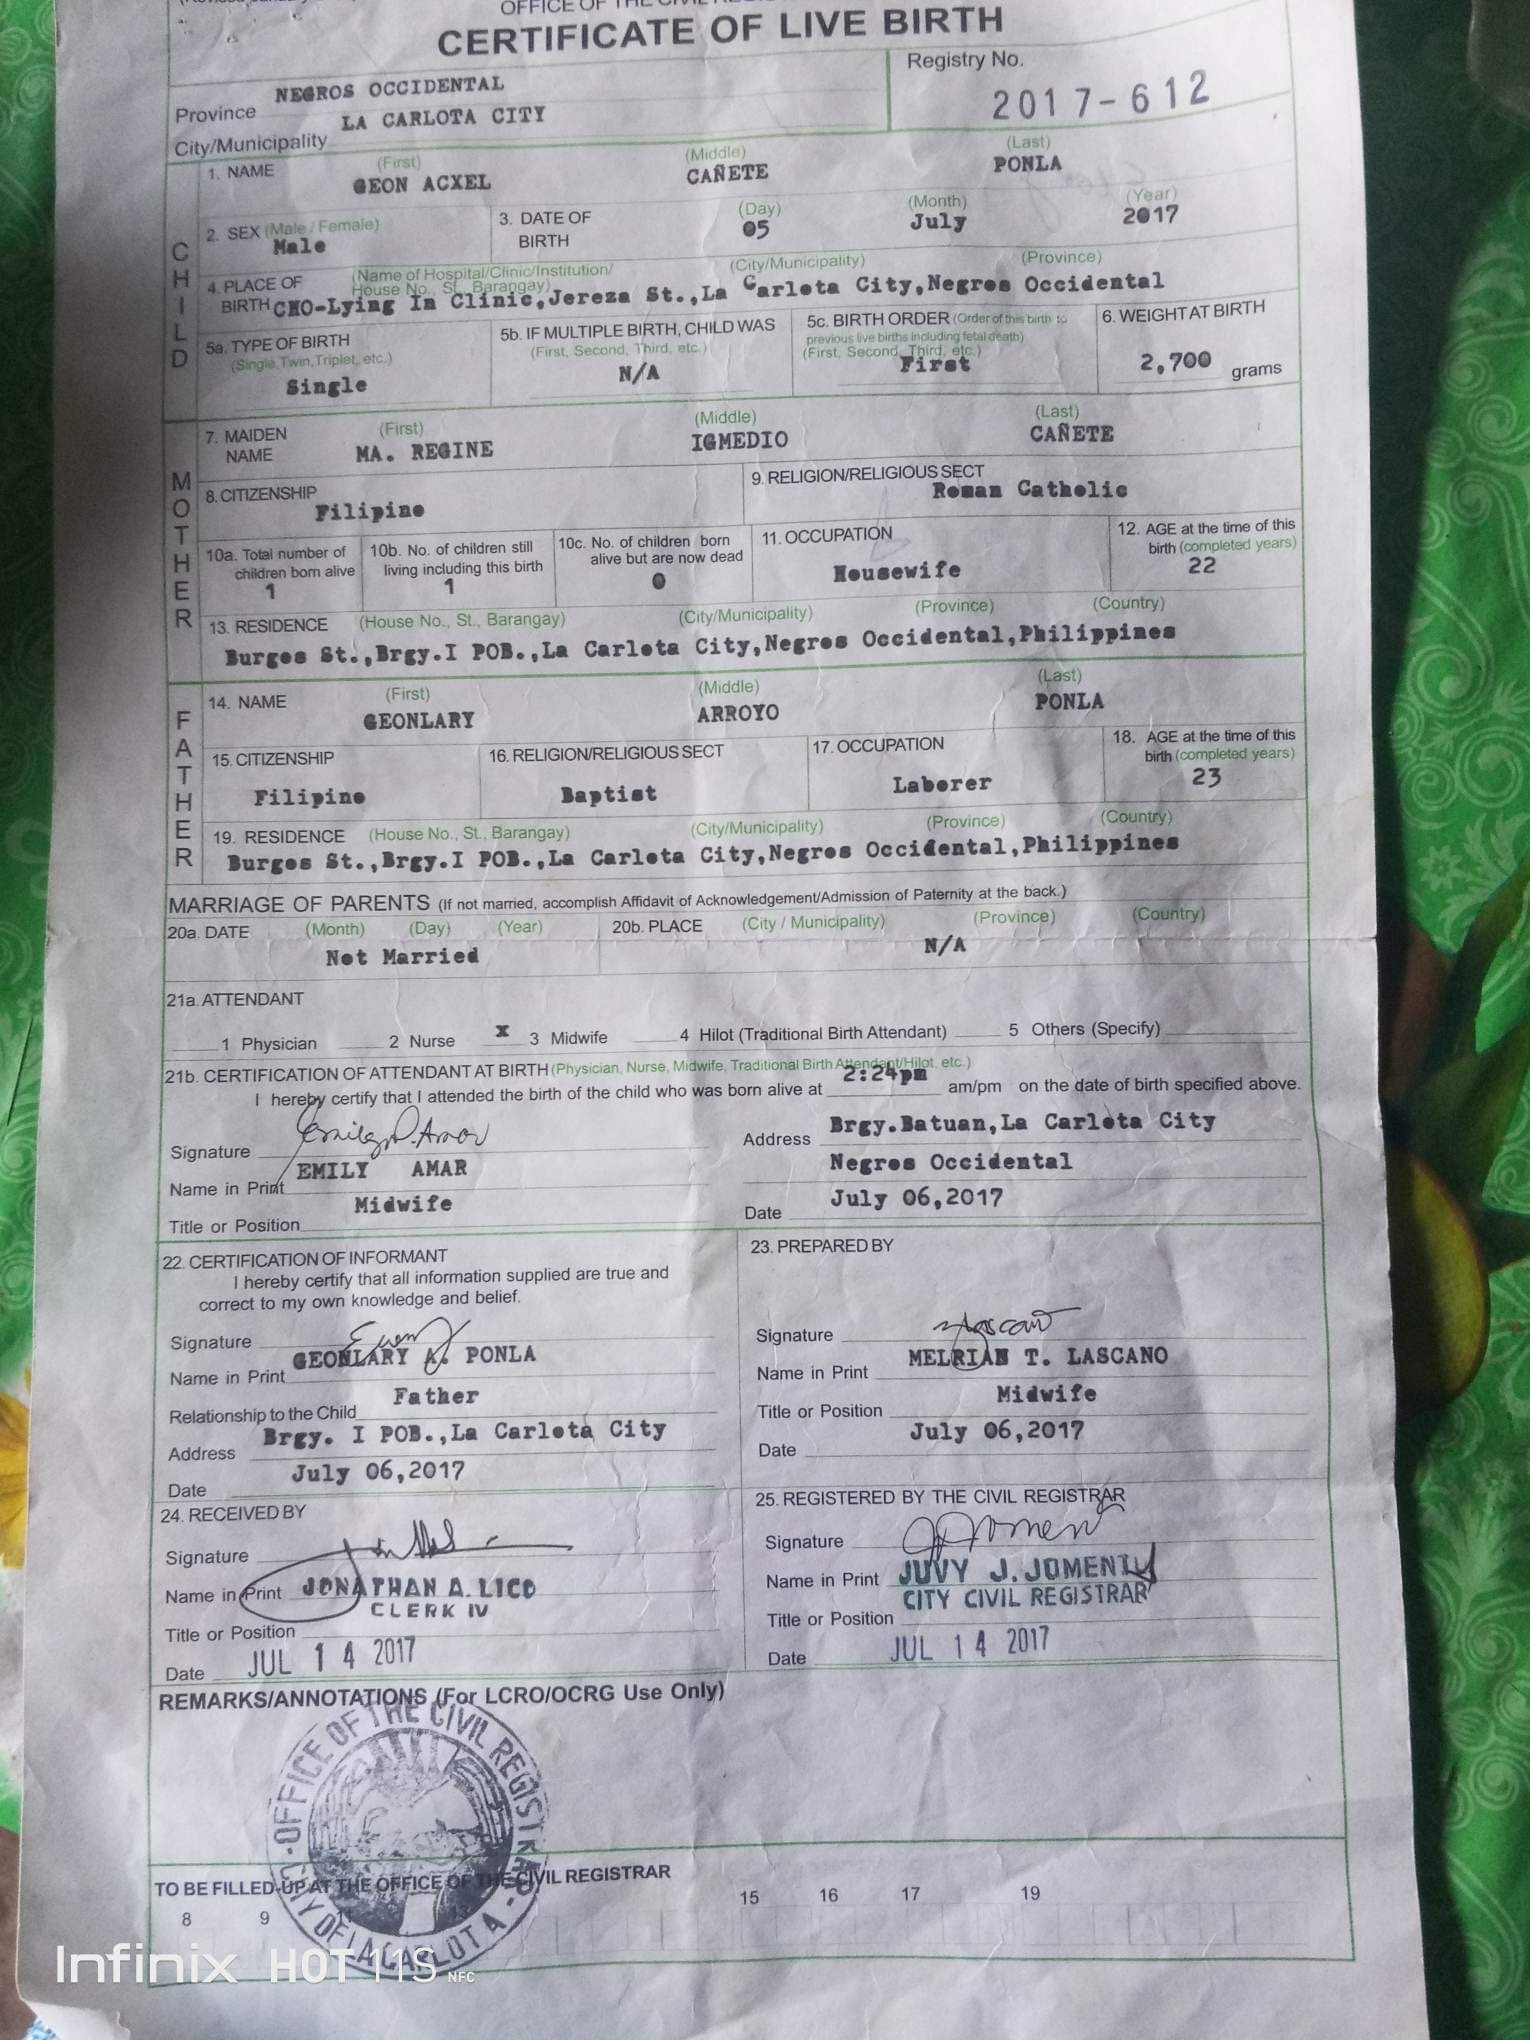 OFFICE OF THE CIVIL
CERTIFICATE OF LIVE BIRTH
Province NEGROS OCCIDENTAL
Registry No.
City/Municipality LA CARLOTA CITY
2017-612
CHILD
1. NAME (First) (Middle) (Last)
GEON ACXEL CAÑETE PONLA
2. SEX (Male / Female) 3. DATE OF BIRTH (Day) (Month) (Year)
Male 05 July 2017
4. PLACE OF BIRTH (Name of Hospital/Clinic/Institution/ House No., St., Barangay) (City/Municipality) (Province)
CHO-Lying In Clinic,Jereza St.,La Carlota City,Negros Occidental
5a. TYPE OF BIRTH (Single, Twin, Triplet, etc.)
Single
5b. IF MULTIPLE BIRTH, CHILD WAS (First, Second, Third, etc.)
N/A
5c. BIRTH ORDER (Order of this birth to previous live births including fetal death) (First, Second, Third, etc.)
First
6. WEIGHT AT BIRTH
2,700 grams
MOTHER
7. MAIDEN NAME (First) (Middle) (Last)
MA. REGINE IGMEDIO CAÑETE
8. CITIZENSHIP
Filipino
9. RELIGION/RELIGIOUS SECT
Roman Catholic
10a. Total number of children born alive
1
10b. No. of children still living including this birth
1
10c. No. of children born alive but are now dead
0
11. OCCUPATION
Housewife
12. AGE at the time of this birth (completed years)
22
13. RESIDENCE (House No., St., Barangay) (City/Municipality) (Province) (Country)
Burgos St.,Brgy.I POB.,La Carlota City,Negros Occidental,Philippines
FATHER
14. NAME (First) (Middle) (Last)
GEONLARY ARROYO PONLA
15. CITIZENSHIP
Filipino
16. RELIGION/RELIGIOUS SECT
Baptist
17. OCCUPATION
Laborer
18. AGE at the time of this birth (completed years)
23
19. RESIDENCE (House No., St., Barangay) (City/Municipality) (Province) (Country)
Burgos St.,Brgy.I POB.,La Carlota City,Negros Occidental,Philippines
MARRIAGE OF PARENTS (If not married, accomplish Affidavit of Acknowledgement/Admission of Paternity at the back.)
20a. DATE (Month) (Day) (Year) 20b. PLACE (City / Municipality) (Province) (Country)
Not Married N/A
21a. ATTENDANT
1 Physician 2 Nurse X 3 Midwife 4 Hilot (Traditional Birth Attendant) 5 Others (Specify)
21b. CERTIFICATION OF ATTENDANT AT BIRTH (Physician, Nurse, Midwife, Traditional Birth Attendant/Hilot, etc.)
I hereby certify that I attended the birth of the child who was born alive at 2:24pm am/pm on the date of birth specified above.
Signature Emily Amar
Address Brgy.Batuan,La Carlota City
Name in Print EMILY AMAR
Negros Occidental
Title or Position Midwife
Date July 06,2017
22. CERTIFICATION OF INFORMANT
I hereby certify that all information supplied are true and
correct to my own knowledge and belief.
Signature
Name in Print GEONLARY A. PONLA
Relationship to the Child Father
Address Brgy. I POB.,La Carlota City
Date July 06,2017
23. PREPARED BY
Signature
Name in Print MELRIAN T. LASCANO
Title or Position Midwife
Date July 06,2017
24. RECEIVED BY
Signature
Name in Print JONATHAN A. LICO
CLERK IV
Title or Position
Date JUL 14 2017
25. REGISTERED BY THE CIVIL REGISTRAR
Signature
Name in Print JUVY J. JOMENTY
CITY CIVIL REGISTRAR
Title or Position
Date JUL 14 2017
REMARKS/ANNOTATIONS (For LCRO/OCRG Use Only)
OFFICE OF THE CIVIL REGISTRAR
CITY OF LA CARLOTA
TO BE FILLED-UP AT THE OFFICE OF THE CIVIL REGISTRAR
8 9 11 13 15 16 17 19
Infinix HOT 11S NFC